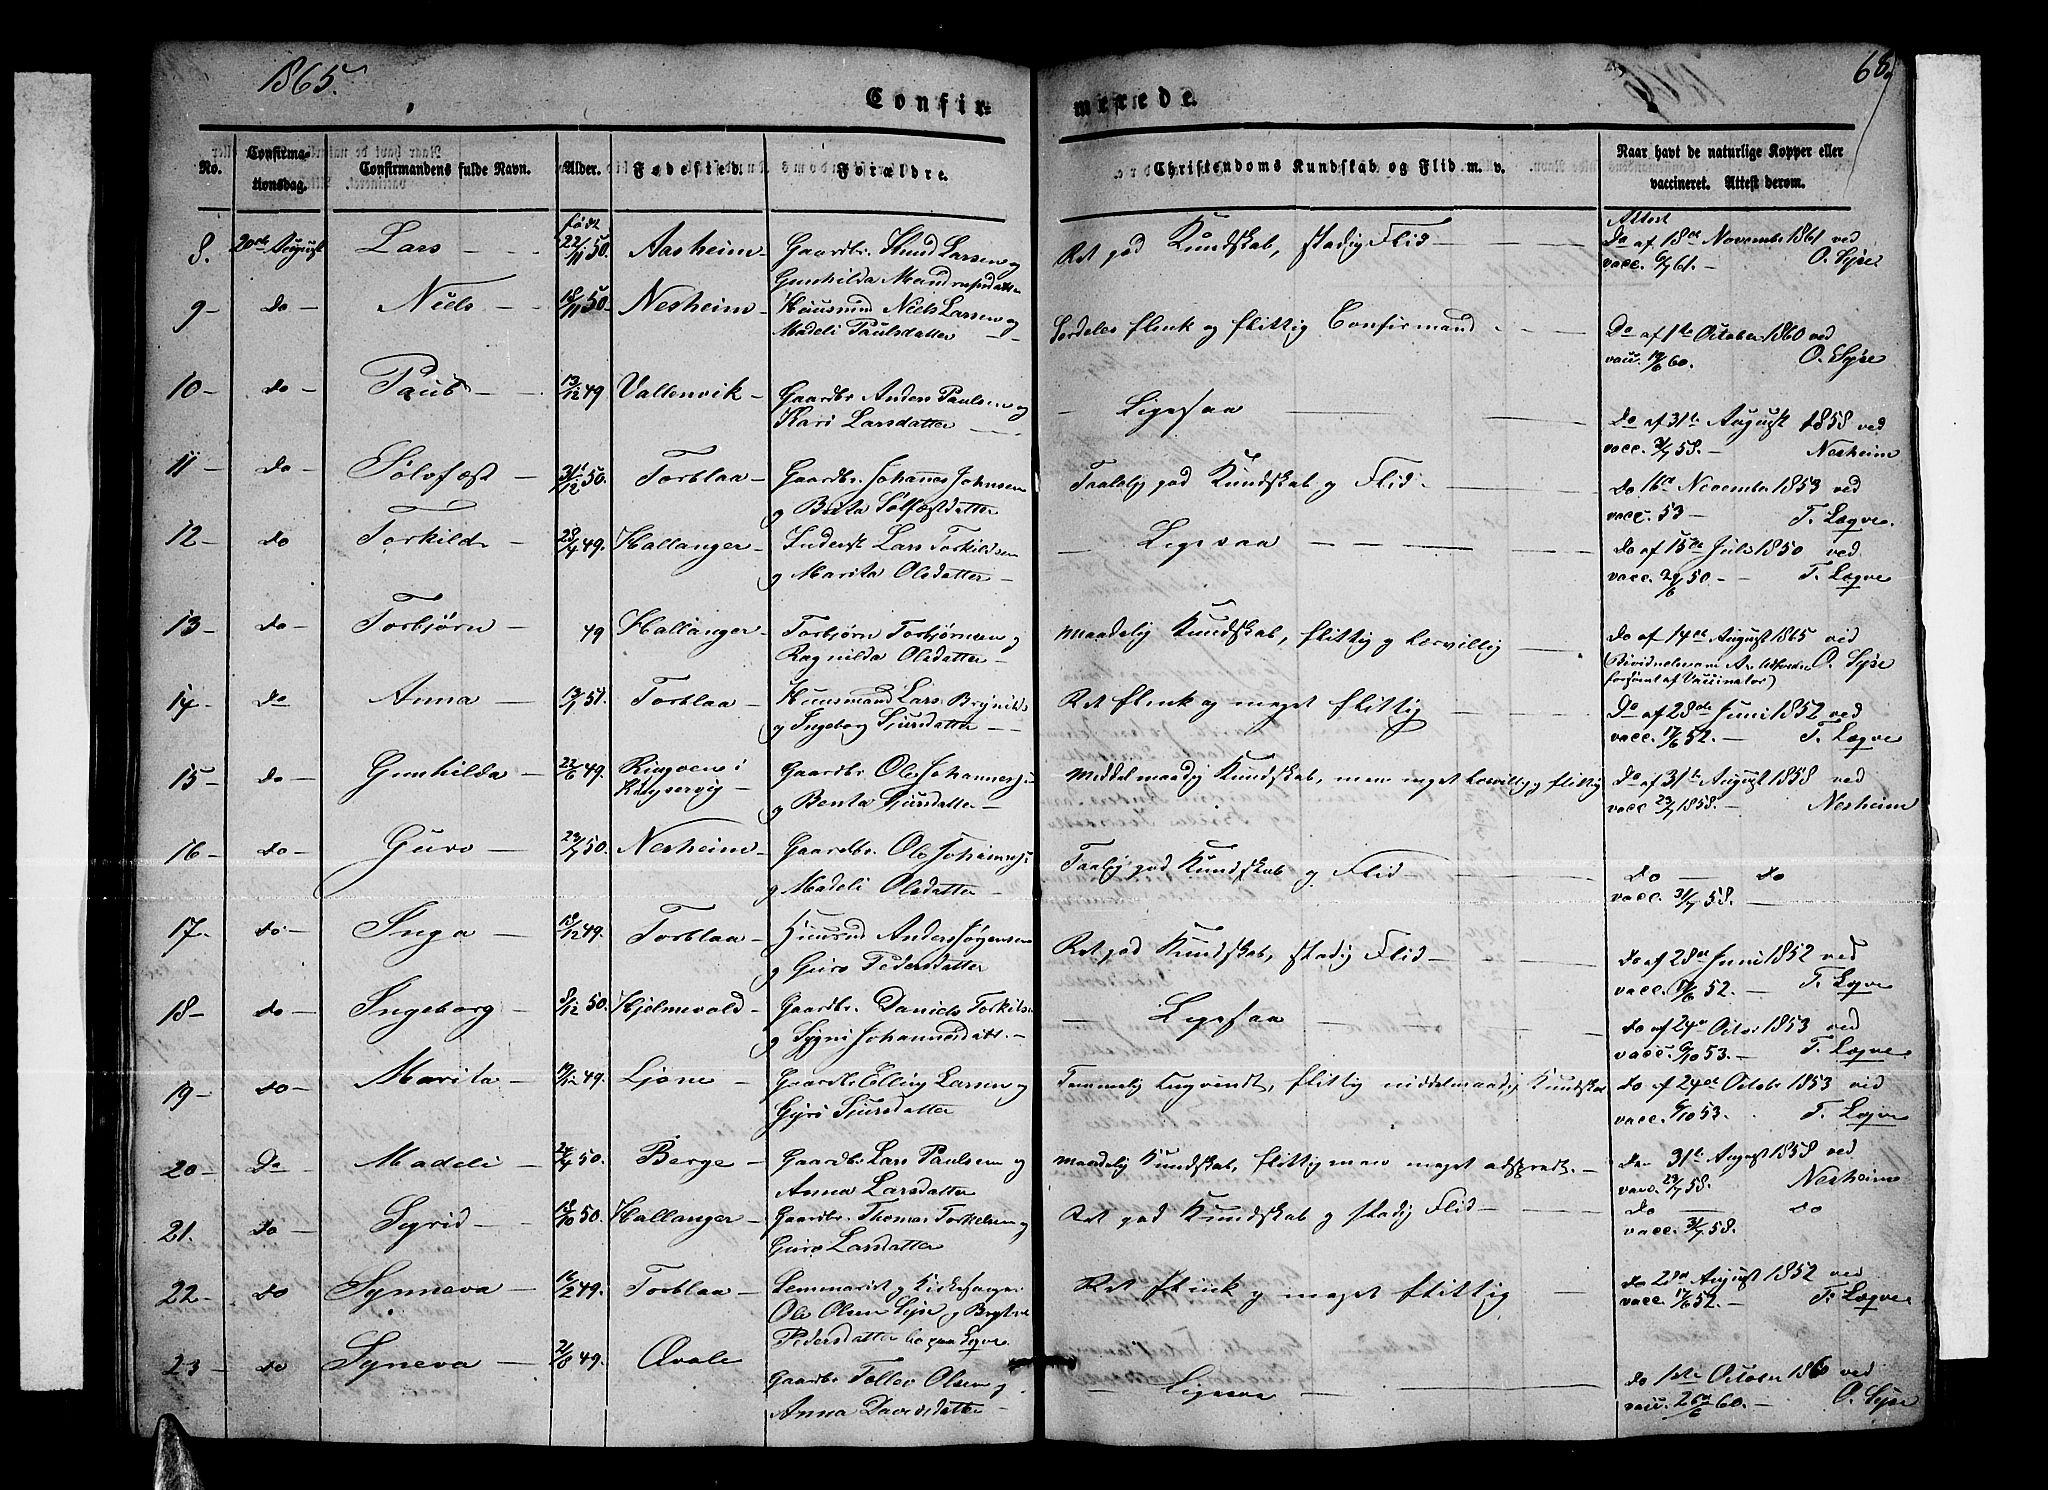 1865.
68.
Confir=
merede.
No.
Confirma-
tionsdag.
Confirmandens fulde Navn.
Alder.
Fødested.
Forældre.
Christendoms Kundskab og Flid m. v.
Naar havt de naturlige Kopper eller
vaccineret. Attest derom.
født
Attest
8. 20de August Lars 22/11 50. Aasheim Gaardbr. Knud Larsen og Ret god Kundskab, stadig Flid Do af 18de November 1861 ved
Gunhilda vacc. 61. O. Syse
9 do Niels 18/11 50. Nesheim Huusmd Niels Larsen og Serdeles flink og flittig Confirmand Do af 1ste October 1860 ved
Madeli Paulsdatter 60. O. Syse
10 do Paul 13/12 49 Vallenvik Gaardbr. Anders Paulsen og Ligesaa Do af 31te August 1858 ved
Kari Larsdatter vacc. 58. Nesheim
11 do Sølvfæst 31/12 50. Torblaa Gaardbr. Johannes Johnsen Taalelig god Kundskab og Flid Do 16de November 1853 ved
og Brita Sølfæstdatter vacc. 53 T. Legve
12 do Torkild 49. Hallanger Inderst Lars Torkildsen Ligesaa Do af 15de Juli 1850 ved
og Marita Olsdatter vacc. 29/6 50 T. Legve
13 do Torbjørn 49 Hallanger Torbjørn Torbjørnsen og maadelig Kundskab, flittig og lærvillig Do af 14de August 1865 ved
Ragnilda Olsdatter O. Syse
af Vaccinator)
14 do Anna 51. Torblaa Huusmand Lars Brynilds Ret flink og meget flittig Do af 28de Juni 1852 ved
og Ingeborg Sjursdatter vacc. 17/6 52. T. Legve
15 do Gunhilda 22/6 49. Gaardbr. Ole Johannessen Middelmaadig Kundskab, men meget lærvillig og flittig Do af 31te August 1858 ved
og Sjursdatter vacc. 1858. Nesheim
16 do Guro 50. Nesheim Gaardbr. Ole Johannessen Taalelig god Kundskab og Flid do do
og Madeli Olsdatter vacc. 31/7 58.
17. do. Inga 13/12 49. Torblaa Huusmd Anders Jørgensen Ret god Kundskab, stadig Flid Do af 28de Juni 1852 ved
og Guro Pedersdatter vacc. 17/6 52. T. Legve
18 do Ingeborg 8/12 50. Hjelmevold Gaardbr. Daniels Torkilsen Ligesaa do af 24de Octbr 1853 ved
og Sygni Johannesdatt. vacc. 6/10 53. T. Legve
19 do Marita 49. Ljone Gaardbr. Elling Larsen og Temmelig flittig middelmaadig Kundskab do af 24de October 1853 ved
Gjøri Sjursdatter vacc. 6/10 53. T. Legve
20 Do Madeli 50. Berge Gaardbr. Lars Paulsen og maadelig Kundskab, flittig men meget adspredt. 31te August 1858 ved
Anna Larsdatter vacc. 58. Nesheim
21. do Syrid 18/10 50. Hallanger Gaardbr. Thomas Torkelsen og Ret god Kundskab og stadig Flid do do
Guro Larsdatter vacc. 31/7 58.
22 do Synneva 49. Torblaa Seminarist og Kirkesanger Ret flink og meget flittig do 28de August 1852 ved
Ole Olsen Syse og vacc. 17/6 52. T. Legve
Pedersdatter
23 do Syneva 21/8 49. Ovale Gaardbr. Tollev Olsen og Ligesaa do 1ste October 1860 ved
Anna Davidsdatter 60. O. Syse